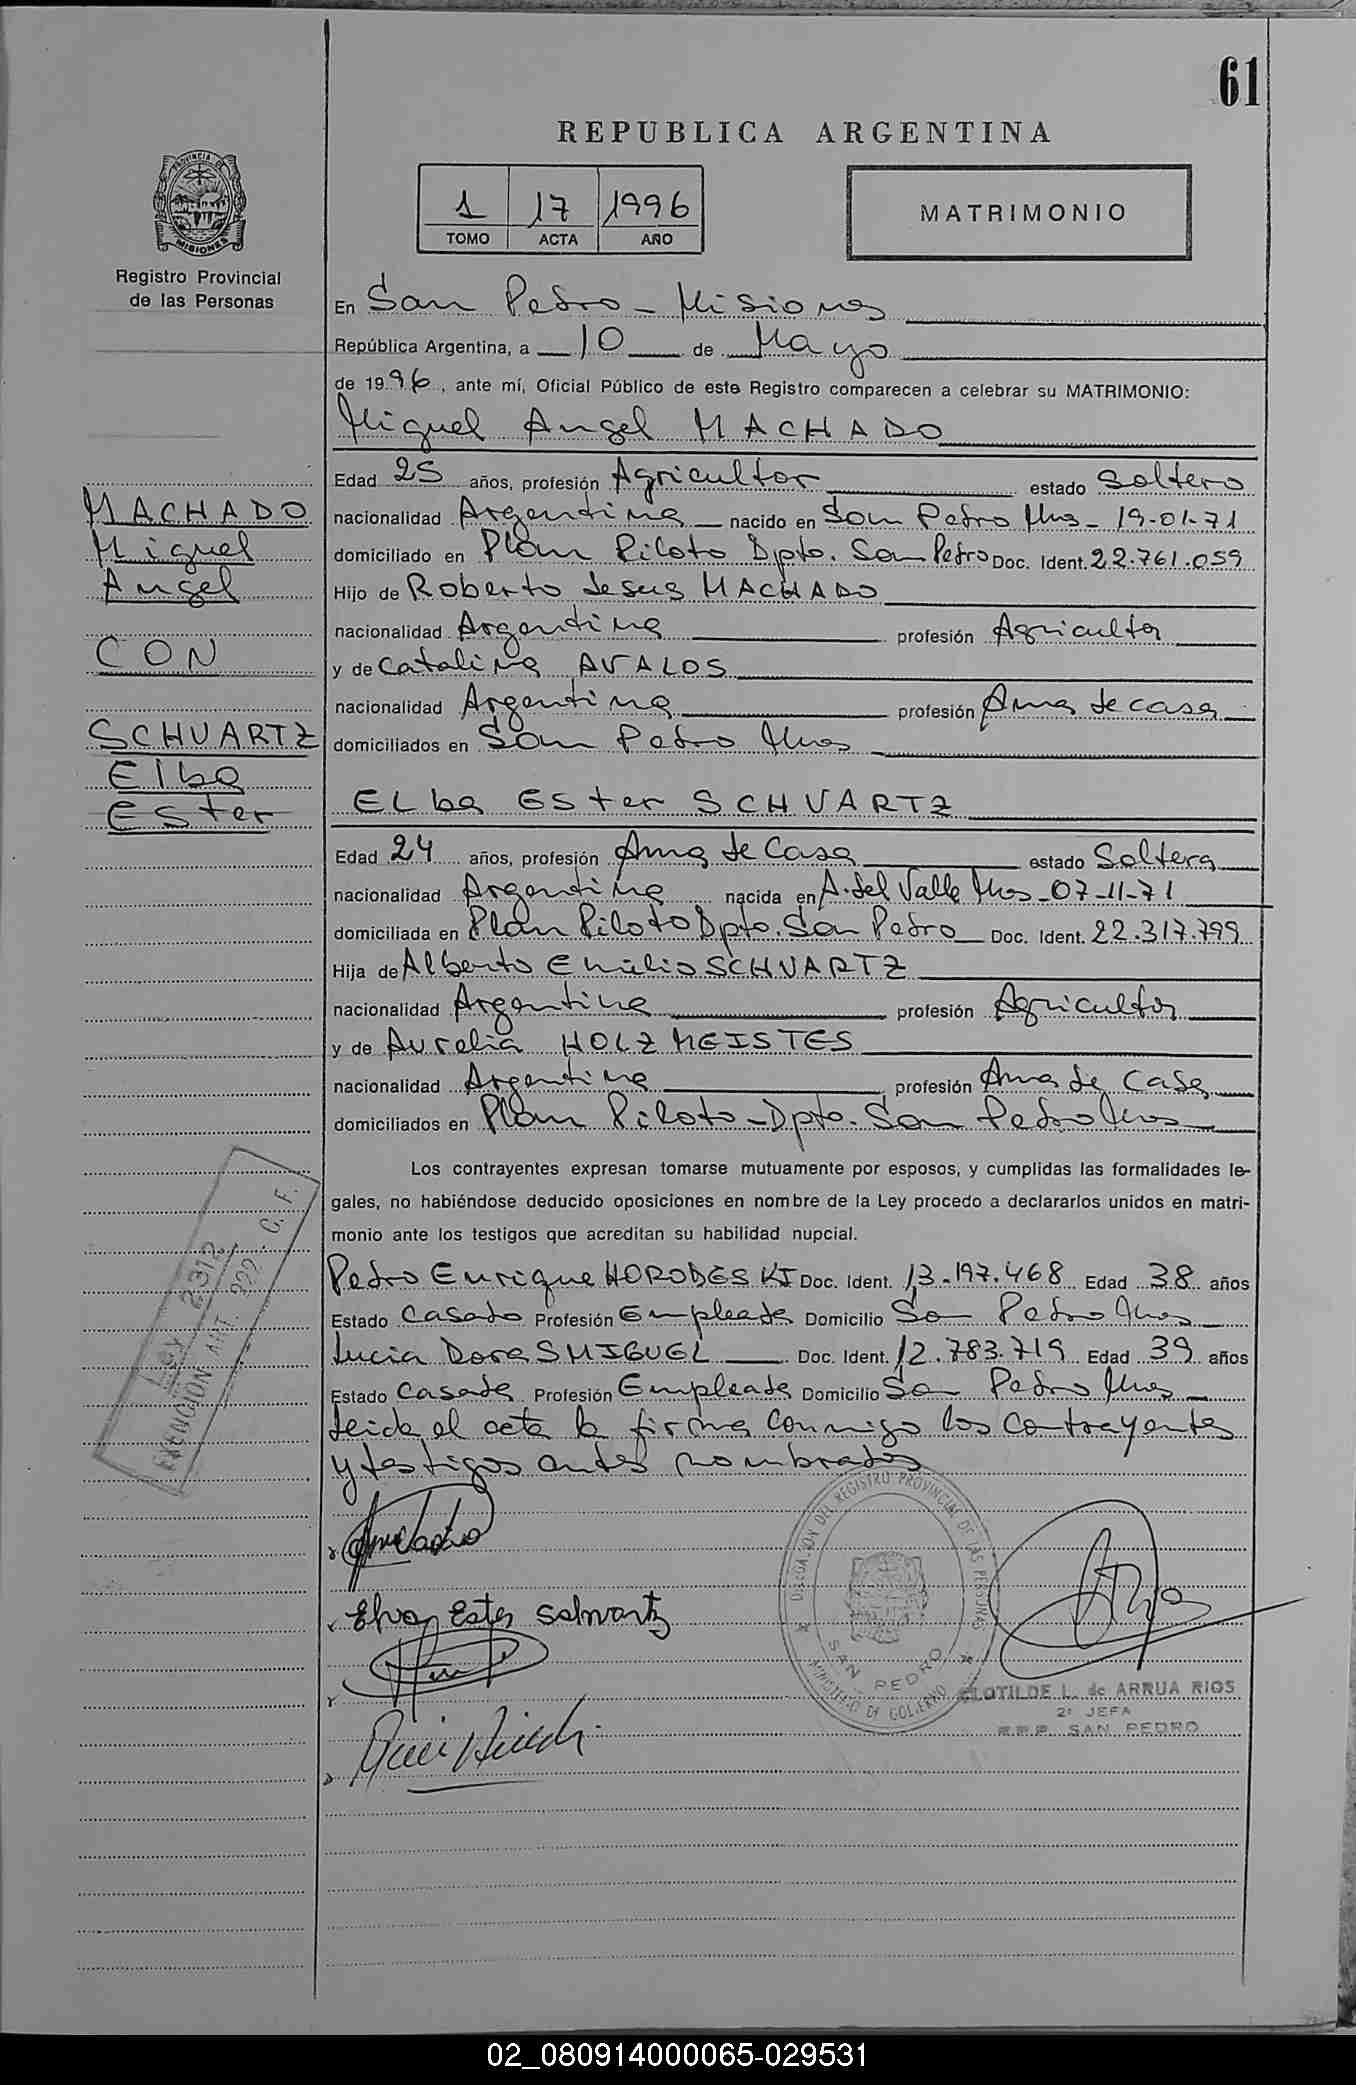 61
REPUBLICA ARGENTINA
PROVINCIA DE
MISIONES
Registro Provincial
de las Personas
1 17 1996
TOMO ACTA AÑO
MATRIMONIO
En San Pedro - Misiones
República Argentina, a 10 de Mayo
de 1996, ante mí, Oficial Público de este Registro comparecen a celebrar su MATRIMONIO:
Miguel Angel MACHADO
Edad 25 años, profesión Agricultor estado Soltero
MACHADO
nacionalidad Argentina nacido en San Pedro Mnes - 19-01-71
Miguel
domiciliado en Plan Piloto Dpto. San Pedro Doc. Ident. 22.761.059
Angel
Hijo de Roberto Jesus MACHADO
nacionalidad Argentina profesión Agricultor
CON
y de Catalina AVALOS
nacionalidad Argentina profesión Ama de casa
SCHVARTZ
domiciliados en San Pedro Mnes
Elba
Ester
ELba Ester SCHVARTZ
Edad 24 años, profesión Ama de Casa estado Soltera
nacionalidad Argentina nacida en A. del Valle Mnes - 07-11-71
domiciliada en Plan Piloto Dpto. San Pedro Doc. Ident. 22.317.799
Hija de Alberto Emilio SCHVARTZ
nacionalidad Argentina profesión Agricultor
y de Aurelia HOLZMEISTES
nacionalidad Argentina profesión Ama de Casa
domiciliados en Plan Piloto - Dpto. San Pedro Mnes
Los contrayentes expresan tomarse mutuamente por esposos, y cumplidas las formalidades le-
gales, no habiéndose deducido oposiciones en nombre de la Ley procedo a declararlos unidos en matri-
monio ante los testigos que acreditan su habilidad nupcial.
Pedro Enrique HORODESKI Doc. Ident. 13.197.468 Edad 38 años
Estado Casado Profesión Empleada Domicilio San Pedro Mnes
Lucia Dora SMIGUEL Doc. Ident. 12.783.719 Edad 39 años
Estado Casada Profesión Empleada Domicilio San Pedro Mnes
LEY 2312
EXENCION ART. 222 C. F.
Leida el acta la firma conmigo los contrayente
y testigos antes nombrados
Elva Ester Schvartz
DELEGACION DEL REGISTRO PROVINCIAL DE LAS PERSONAS
SAN PEDRO
MINISTERIO DE GOBIERNO
CLOTILDE L. de ARRUA RIOS
2º JEFA
R.P.P. SAN PEDRO
02_080914000065-029531